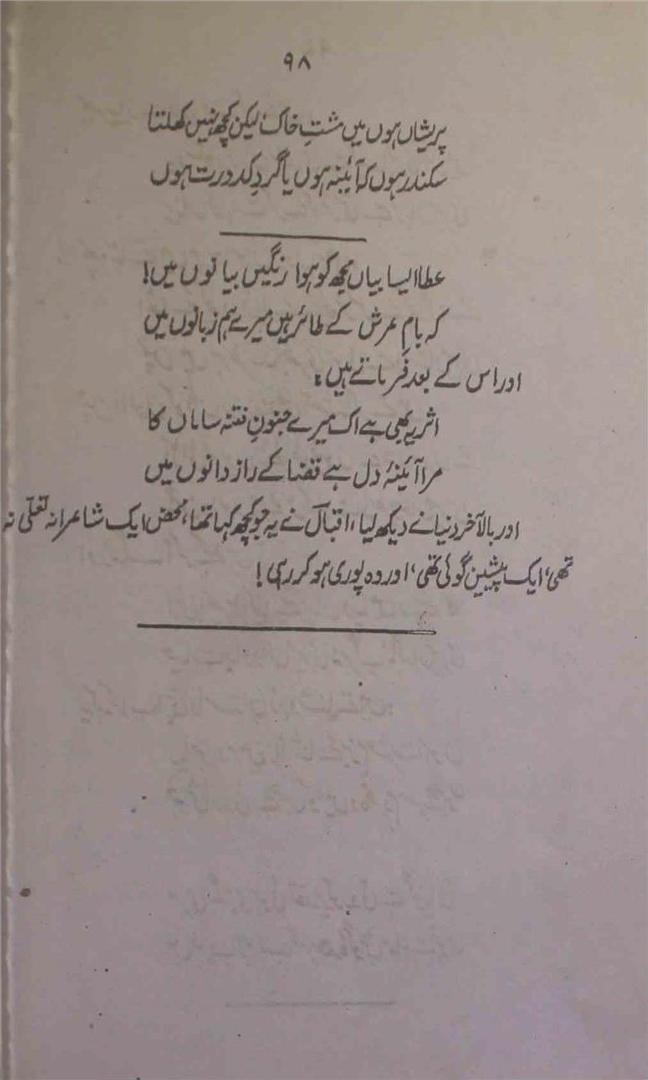 ۹۸
پریشاں ہوں میں مشتِ خاک، لیکن کچھ نہیں کھلتا
سکندر ہوں کہ آئینہ ہوں یا گردِ کدورت ہوں
عطا ایسا بیاں مجھ کو ہوا رنگیں بیانوں میں!
کہ بامِ عرش کے طائر ہیں میرے ہم زبانوں میں
اور اس کے بعد فرماتے ہیں:
اثر یہ بھی ہے اک میرے جنونِ فتنہ ساماں کا
مرا آئینۂ دل ہے قضا کے راز دانوں میں
اور بالآخر دنیا نے دیکھ لیا، اقبالؔ نے یہ جو کچھ کہا تھا، محض ایک شاعرانہ تعلّی نہ
تھی، ایک پیشین گوئی تھی، اور وہ پوری ہو کر رہی!